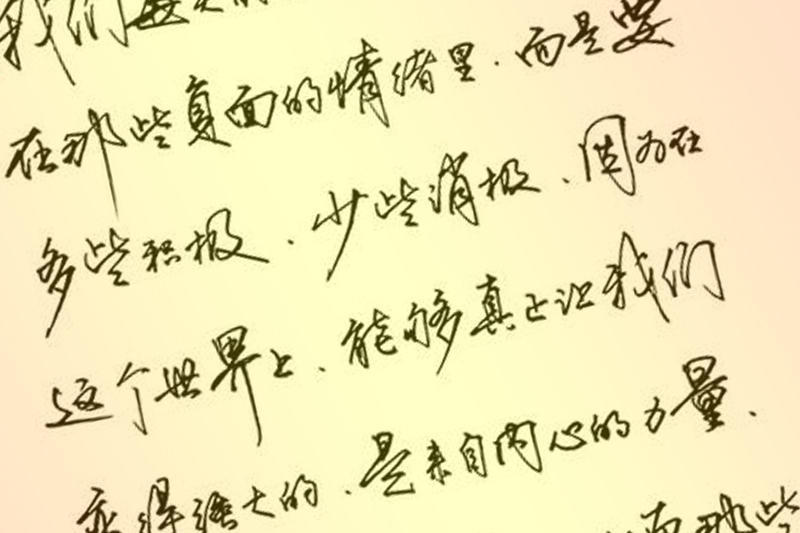 我们每天的
在那些负面的情绪里.而是要
多些积极.少些消极.因为在
这个世界上.能够真正让我们
变得强大的.是来自内心的力量.
而那些